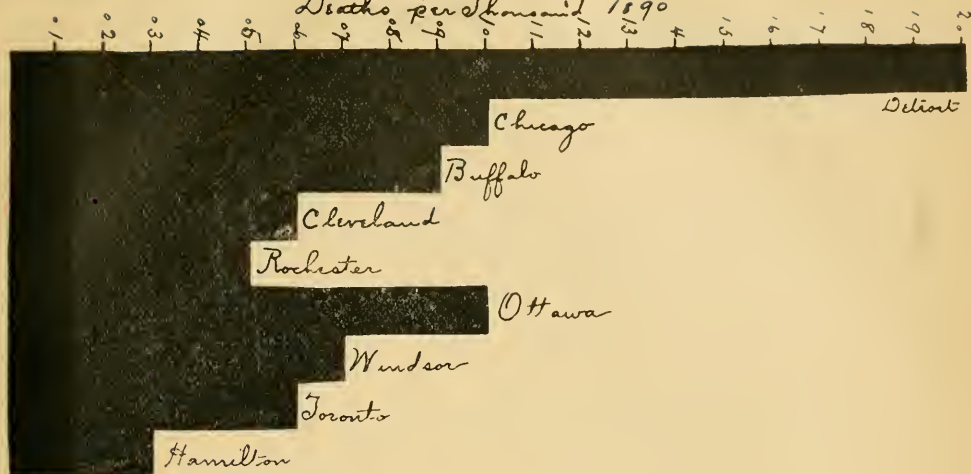 Deaths per Thousand 1890
.01 .02 .03 .04 .05 .06 .07 .08 .09 .10 .11 .12 .13 .14 .15 .16 .17 .18 .19 .20
Detroit
Chicago
Buffalo
Cleveland
Rochester
Ottawa
Windsor
Toronto
Hamilton